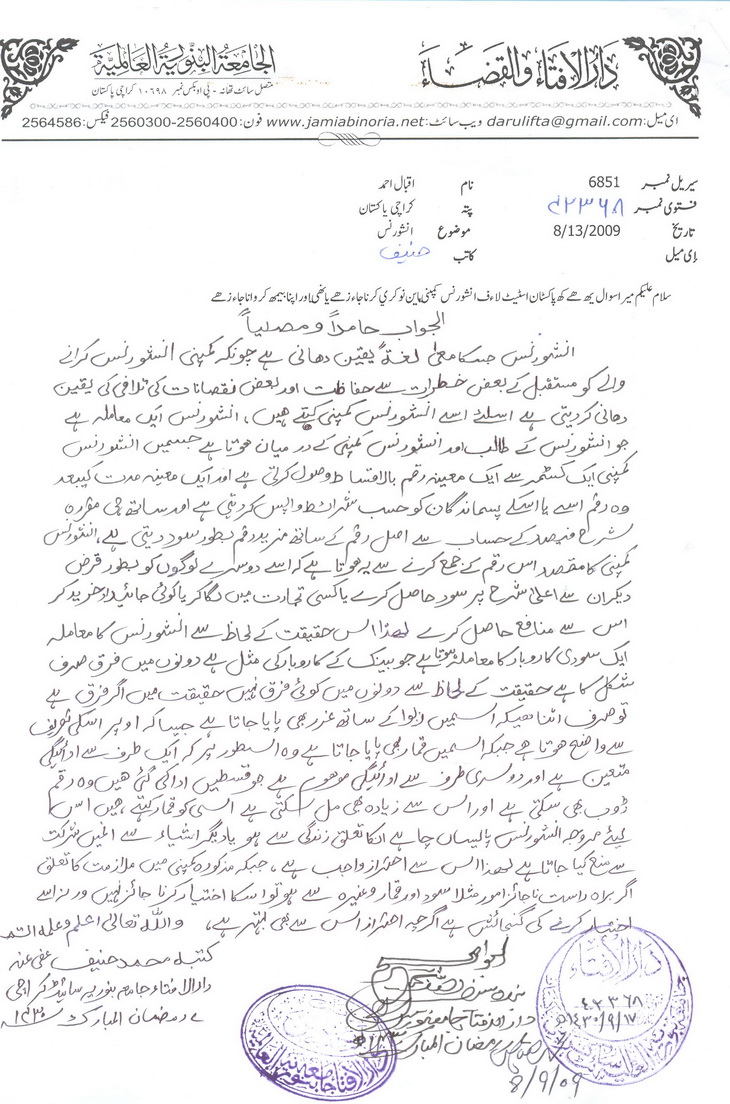 دار الافتاء والقضاء
الجامعة البنورية العالمية
متصل سائٹ تھانہ - پی او بکس نمبر ۱۰۶۹۸ کراچی پاکستان
ای میل: darulifta@gmail.com ویب سائٹ: www.jamiabinoria.net فون: 2560300-2560400 فیکس: 2564586
سیریل نمبر 6851 نام اقبال احمد
فتوی نمبر ۴۲۳۶۸ پتہ کراچی پاکستان
تاریخ 8/13/2009 موضوع انشورنس
ای میل کاتب حنیف
سلام علیکم میرا سوال یہ ھے کھ پاکستان اسٹیٹ لاءف انشورنس کمپنی ماین نوکری کرنا جاءز ھے یا نھی اور اپنا بیمھ کروانا جاءز ھے
الجواب حامداً و مصلیاً
انشورنس جسکا معنی لغۃً یقین دھانی ہے چونکہ کمپنی انشورنس کرانے
والے کو مستقبل کے بعض خطرات سے حفاظت اور بعض نقصانات کی تلافی کی یقین
دھانی کردیتی ہے اسلئے اسے انشورنس کمپنی کہتے ھیں، انشورنس ایک معاملہ ہے
جو انشورنس کے طالب اور انشورنس کمپنی کے درمیان ھوتا ہے جسمیں انشورنس
کمپنی ایک کسٹمر سے ایک معینہ رقم بالاقساط وصول کرتی ہے اور ایک معینہ مدت کیبعد
وہ رقم اسے یا اسکے پسماندگان کو حسب شرائط واپس کردیتی ہے اور ساتھ ھی مقررہ
شرح فیصد کے حساب سے اصل رقم کے ساتھ مزید رقم بطور سود دیتی ہے، انشورنس
کمپنی کا مقصد اس رقم کے جمع کرنے سے یہ ھوتا ہے کہ اسے دوسرے لوگوں کو بطور قرض
دیکر ان سے اعلی شرح پر سود حاصل کرے یا کسی تجارت میں لگا کر یا کوئی جائیداد خرید کر
اس سے منافع حاصل کرے لھذا اس حقیقت کے لحاظ سے انشورنس کا معاملہ
ایک سودی کاروبار کا معاملہ ہوتا ہے جو بینک کے کاروبار کی مثل ہے دونوں میں فرق صرف
شکل کا ہے حقیقت کے لحاظ سے دونوں میں کوئی فرق نہیں حقیقت میں اگر فرق ہے
تو صرف اتنا ھیکہ اسمیں ربوا کے ساتھ غرر بھی پایا جاتا ہے جیسا کہ اوپر اسکی تعریف
سے واضح ھوتا ہے جبکہ اسمیں قمار بھی پایا جاتا ہے وہ اسطور پر کہ ایک طرف سے ادائیگی
متعین ہے اور دوسری طرف سے ادائیگی موھوم ہے جو قسطیں ادا کی گئی ھیں وہ رقم
ڈوب بھی سکتی ہے اور اس سے زیادہ بھی مل سکتی ہے اسی کو قمار کہتے ھیں اس
لیئے مروجہ انشورنس پالیسیاں چاہے انکا تعلق زندگی سے ہو یا دیگر اشیاء سے انمیں شرکت
سے منع کیا جاتا ہے لھذا اس سے احتراز واجب ہے، جبکہ مذکورہ کمپنی میں ملازمت کا تعلق
اگر براہ راست ناجائز امور مثلا سود اور قمار وغیرہ سے ہو تو اسکا اختیار کرنا جائز نہیں ورنہ اسے
اختیار کرنے کی گنجائش ہے اگرچہ احتراز اس سے بھی بہتر ہے، واللہ تعالی اعلم وعلمہ اتم
کتبہ محمد حنیف عفی عنہ
دار الافتاء جامعہ بنوریہ سائٹ کراچی
رمضان المبارک ۱۴۳۰ھ
الجواب
دار الافتاء جامعہ بنوریہ
رمضان المبارک
8/9/09
دار الافتاء
۴۲۳۶۸
۱۴۳۰/۹/۱۷ھ